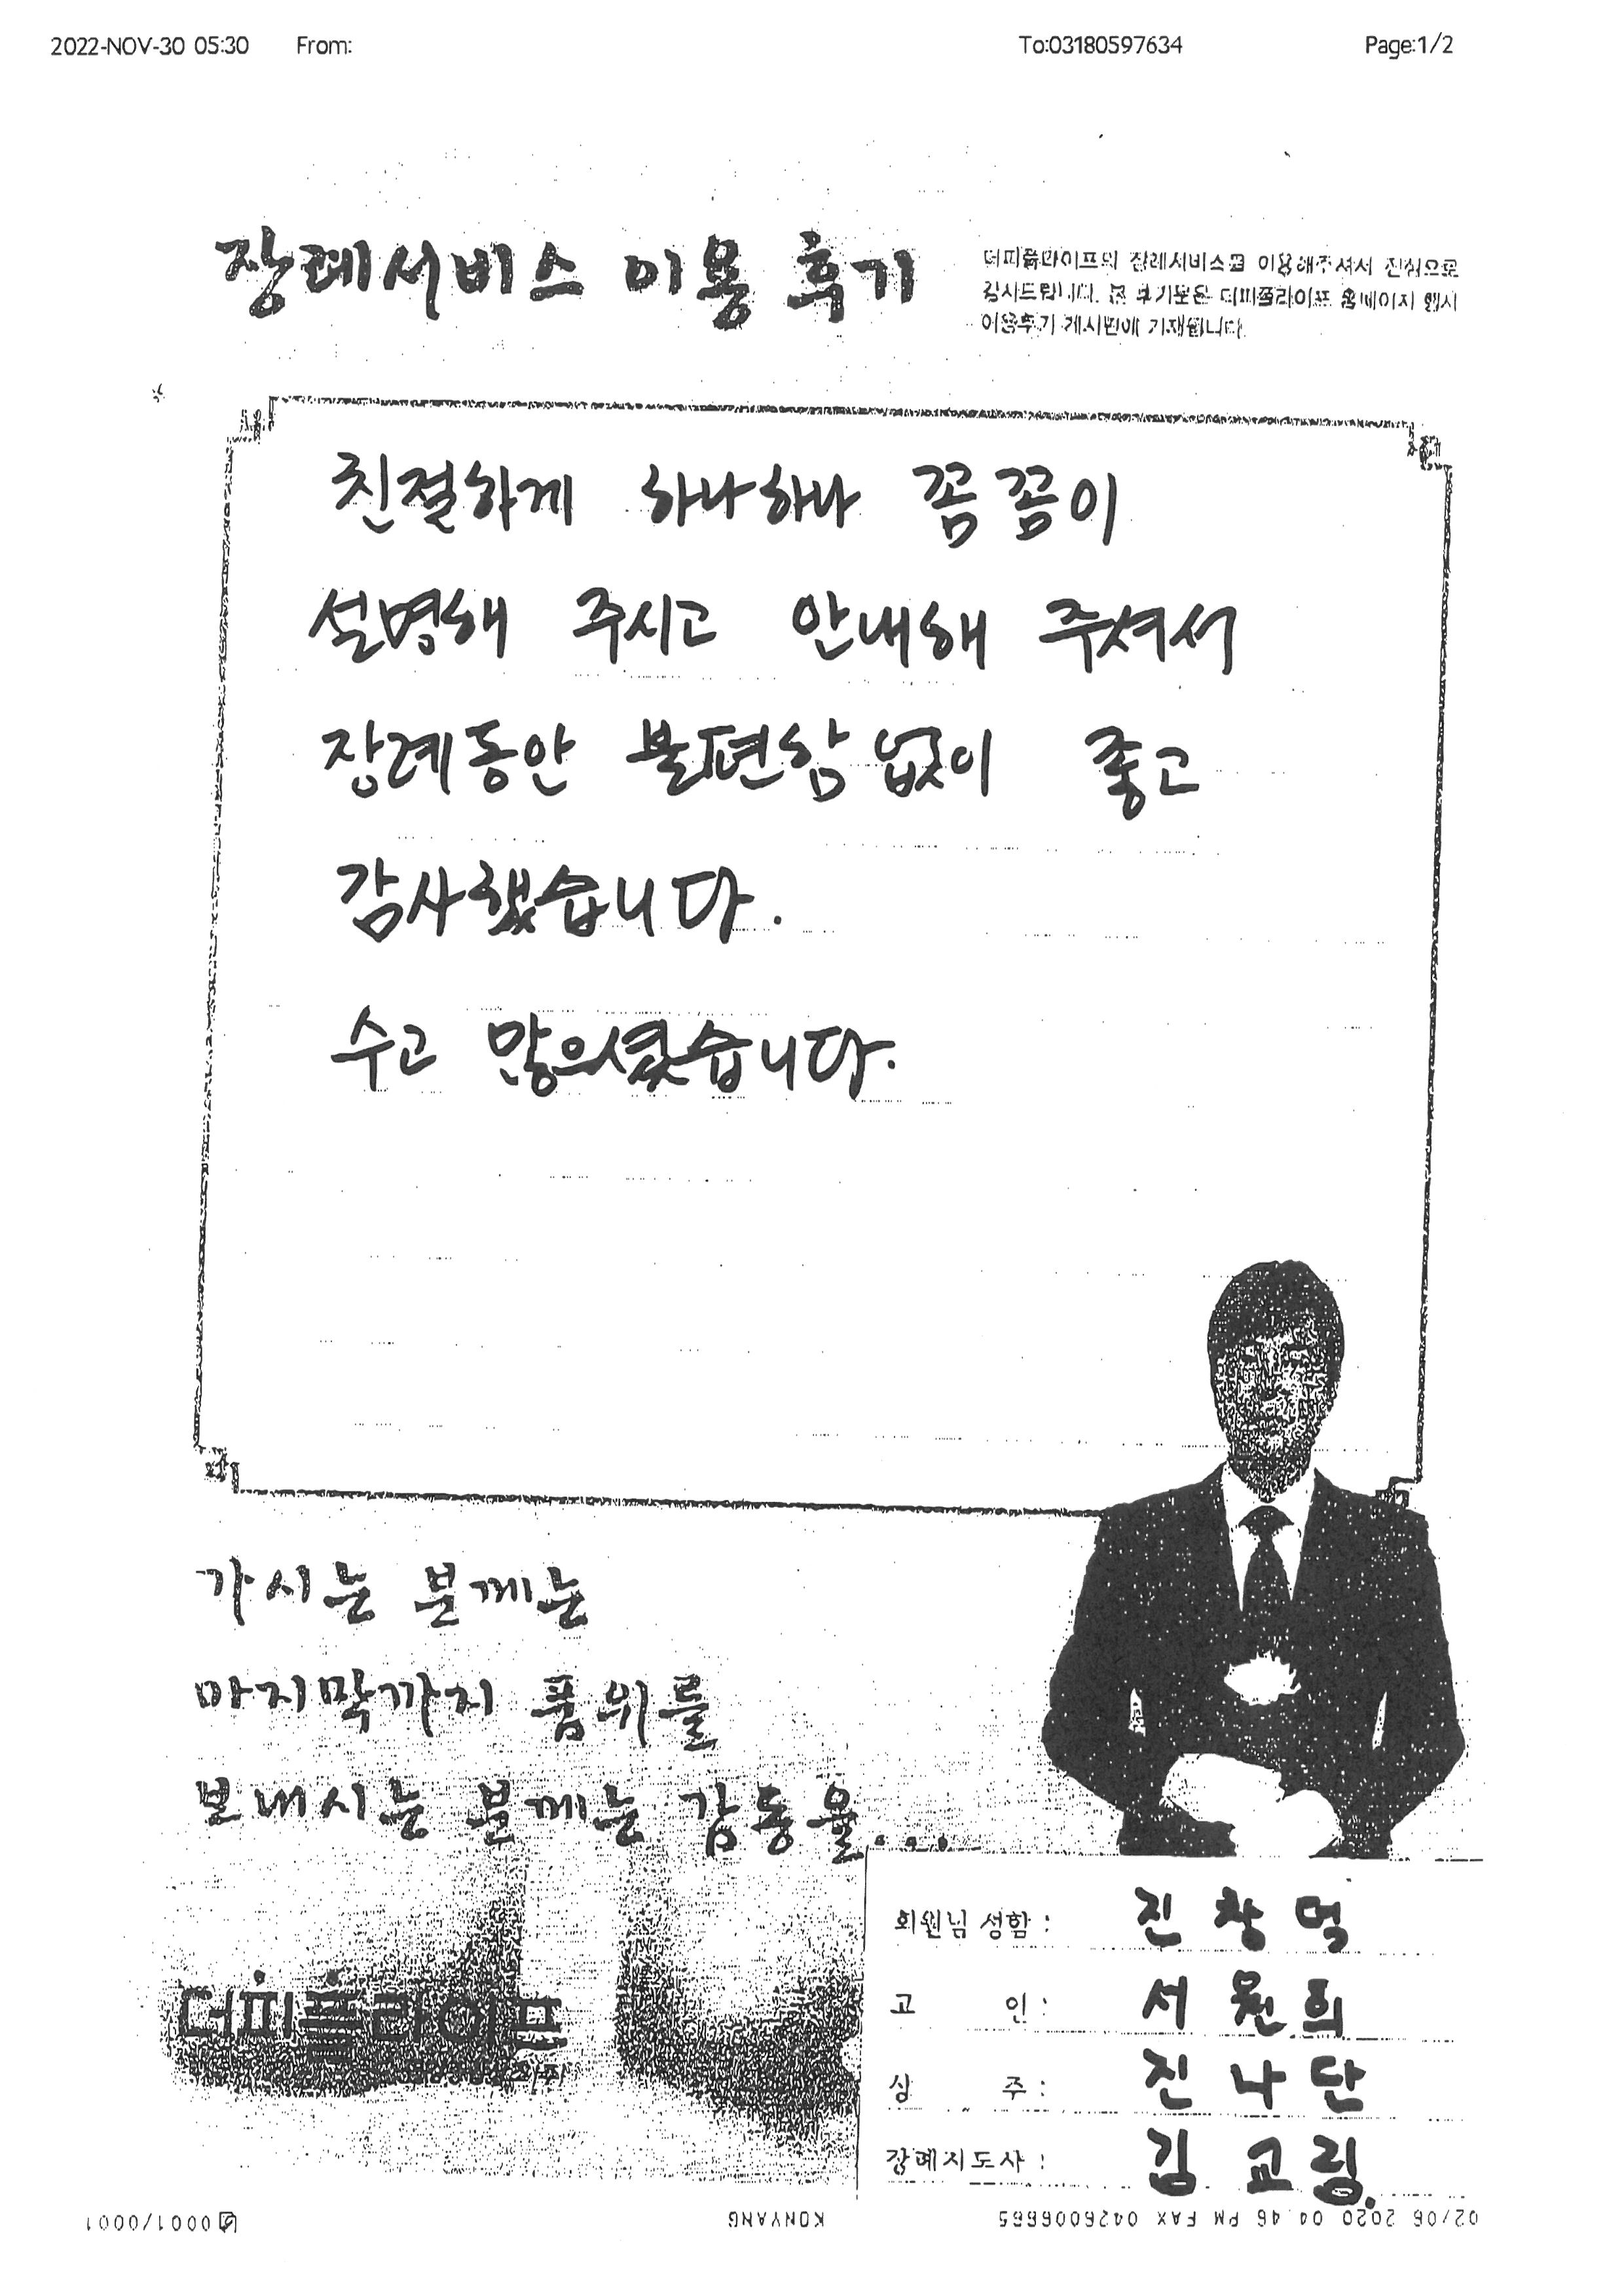 2022-NOV-30 05:30 From: To:03180597634 Page:1/2
장례서비스 이용 후기
더피플라이프의 장례서비스를 이용해주셔서 진심으로
감사드립니다. 본 후기문은 더피플라이프 홈페이지 행사
이용후기 게시판에 기재됩니다.
친절하게 하나하나 꼼꼼이
설명해 주시고 안내해 주셔서
장례동안 불편함없이 좋고
감사했습니다.
수고 많으셨습니다.
가시는 분께는
마지막까지 품위를
보내시는 분께는 감동을...
더피플라이프
회원님 성함 : 진창덕
고 인 : 서원희
상 주 : 진나단
장례지도사 : 김교링.
02/06 2020 04:46 PM FAX 0426006665 KONYANG 0001/0001